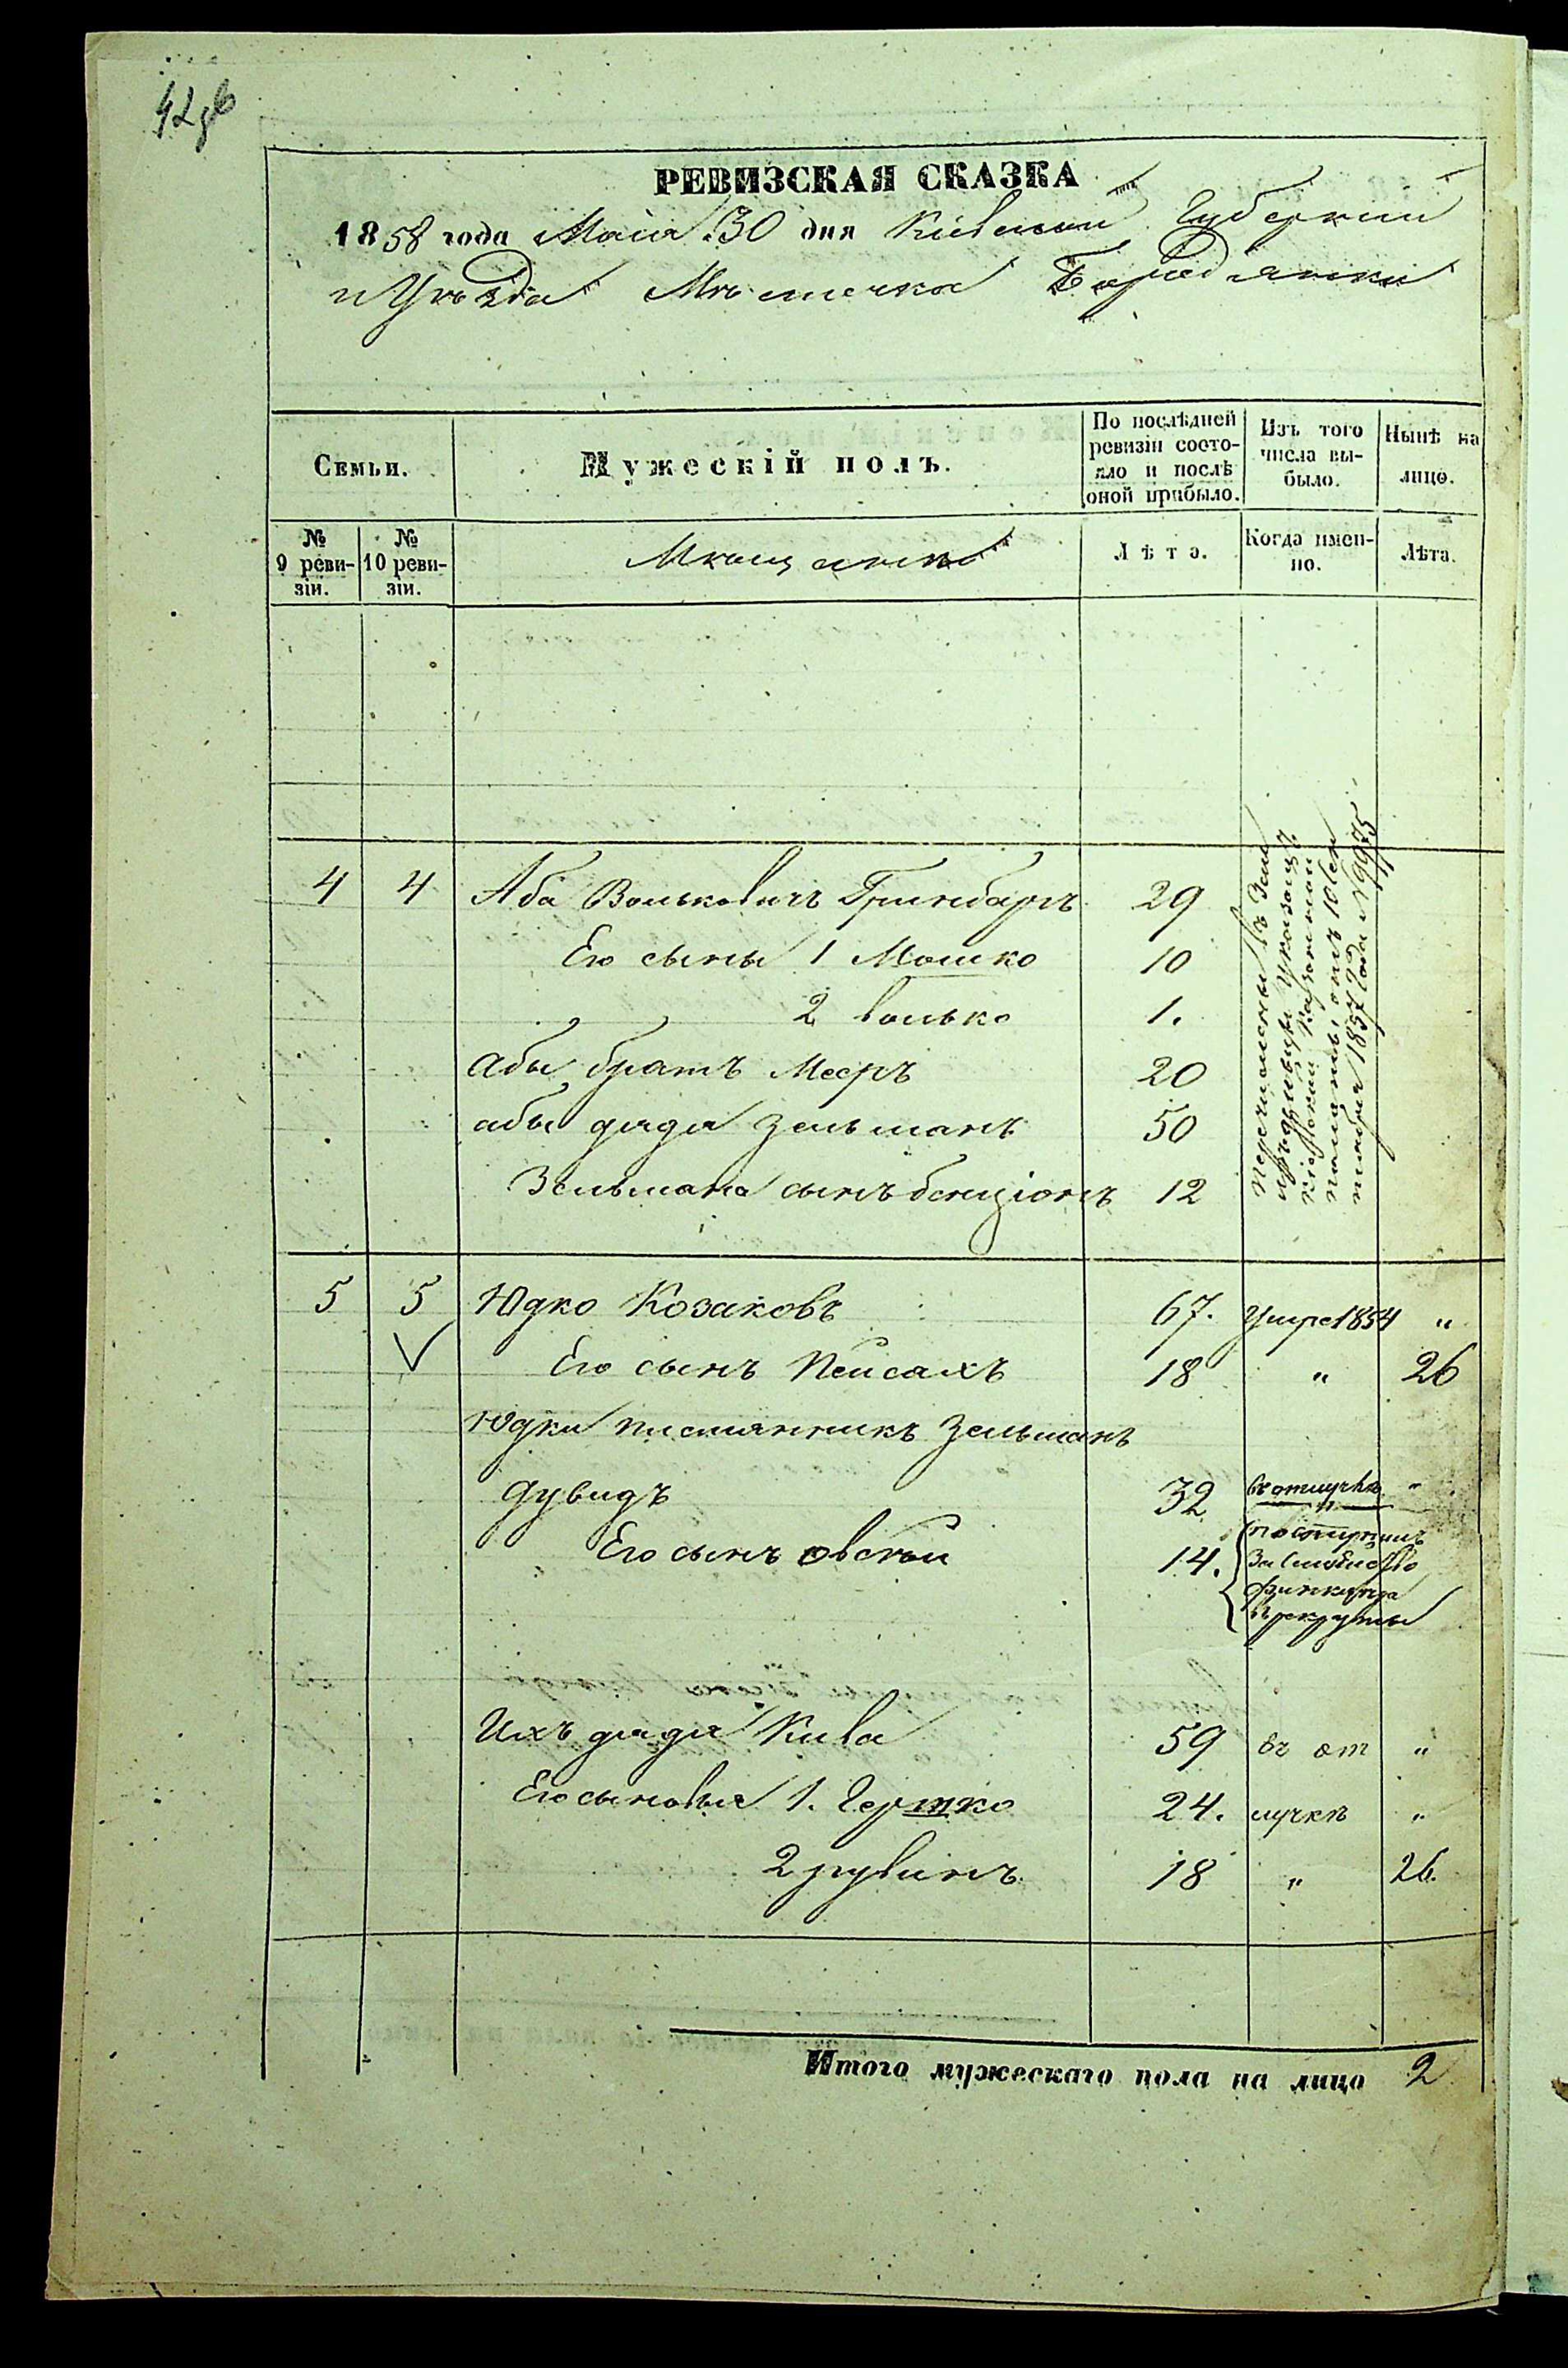 42
РЕВИЗСКАЯ СКАЗКА
1858 года Маія 30 дня Кіевской Губерніи
и Уѣзда Мѣстечка Бородянки
Семьи. Мужескій полъ. По послѣдней ревизіи состояло и послѣ оной прибыло. Изъ того числа выбыло. Нынѣ на лицо.
№ 9 ревизіи. № 10 ревизіи. Мѣщане Лѣта. Когда именно. Лѣта.
4 4 Аба Вольковичъ Гринбаръ 29
Его сыны 1 Мошко 10
2 Волько 1.
Абы братъ Мееръ 20
абы дядя Зельманъ 50
Зельмана сынъ бенціонъ 12
Перечислены въ
Кіевской Казенной
Палаты, отъ 10 Сен
тября 1857 года № 9975
5 5 Юдко Козаковъ 67. Умре 1854 "
Его сынъ Пейсахъ 18 " 26
Юдки племянникъ Зельманъ
Дувидъ 32 въ отлучкѣ "
Его сынъ овсѣй 14.
поступилъ
за
рекруты
Ихъ дядя Кива 59 въ от "
Его сыновья 1. Гершко 24. лучкѣ "
2 рувинъ 18 " 26.
Итого мужескаго пола на лицо 2